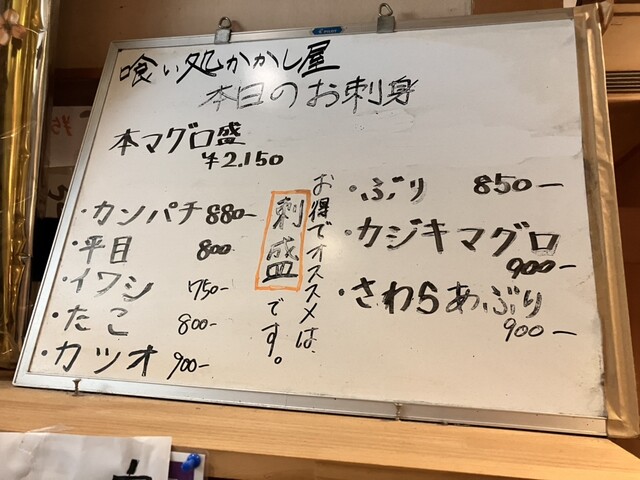 喰い処かかし屋
本日のお刺身
本マグロ盛
¥2.150
・カンパチ 880-
・平目 800
・イワシ 750-
・たこ 800-
・カツオ 900-
お得でオススメは、
刺盛です。
・ぶり 850-
・カジキマグロ
900-
・さわらあぶり
900-